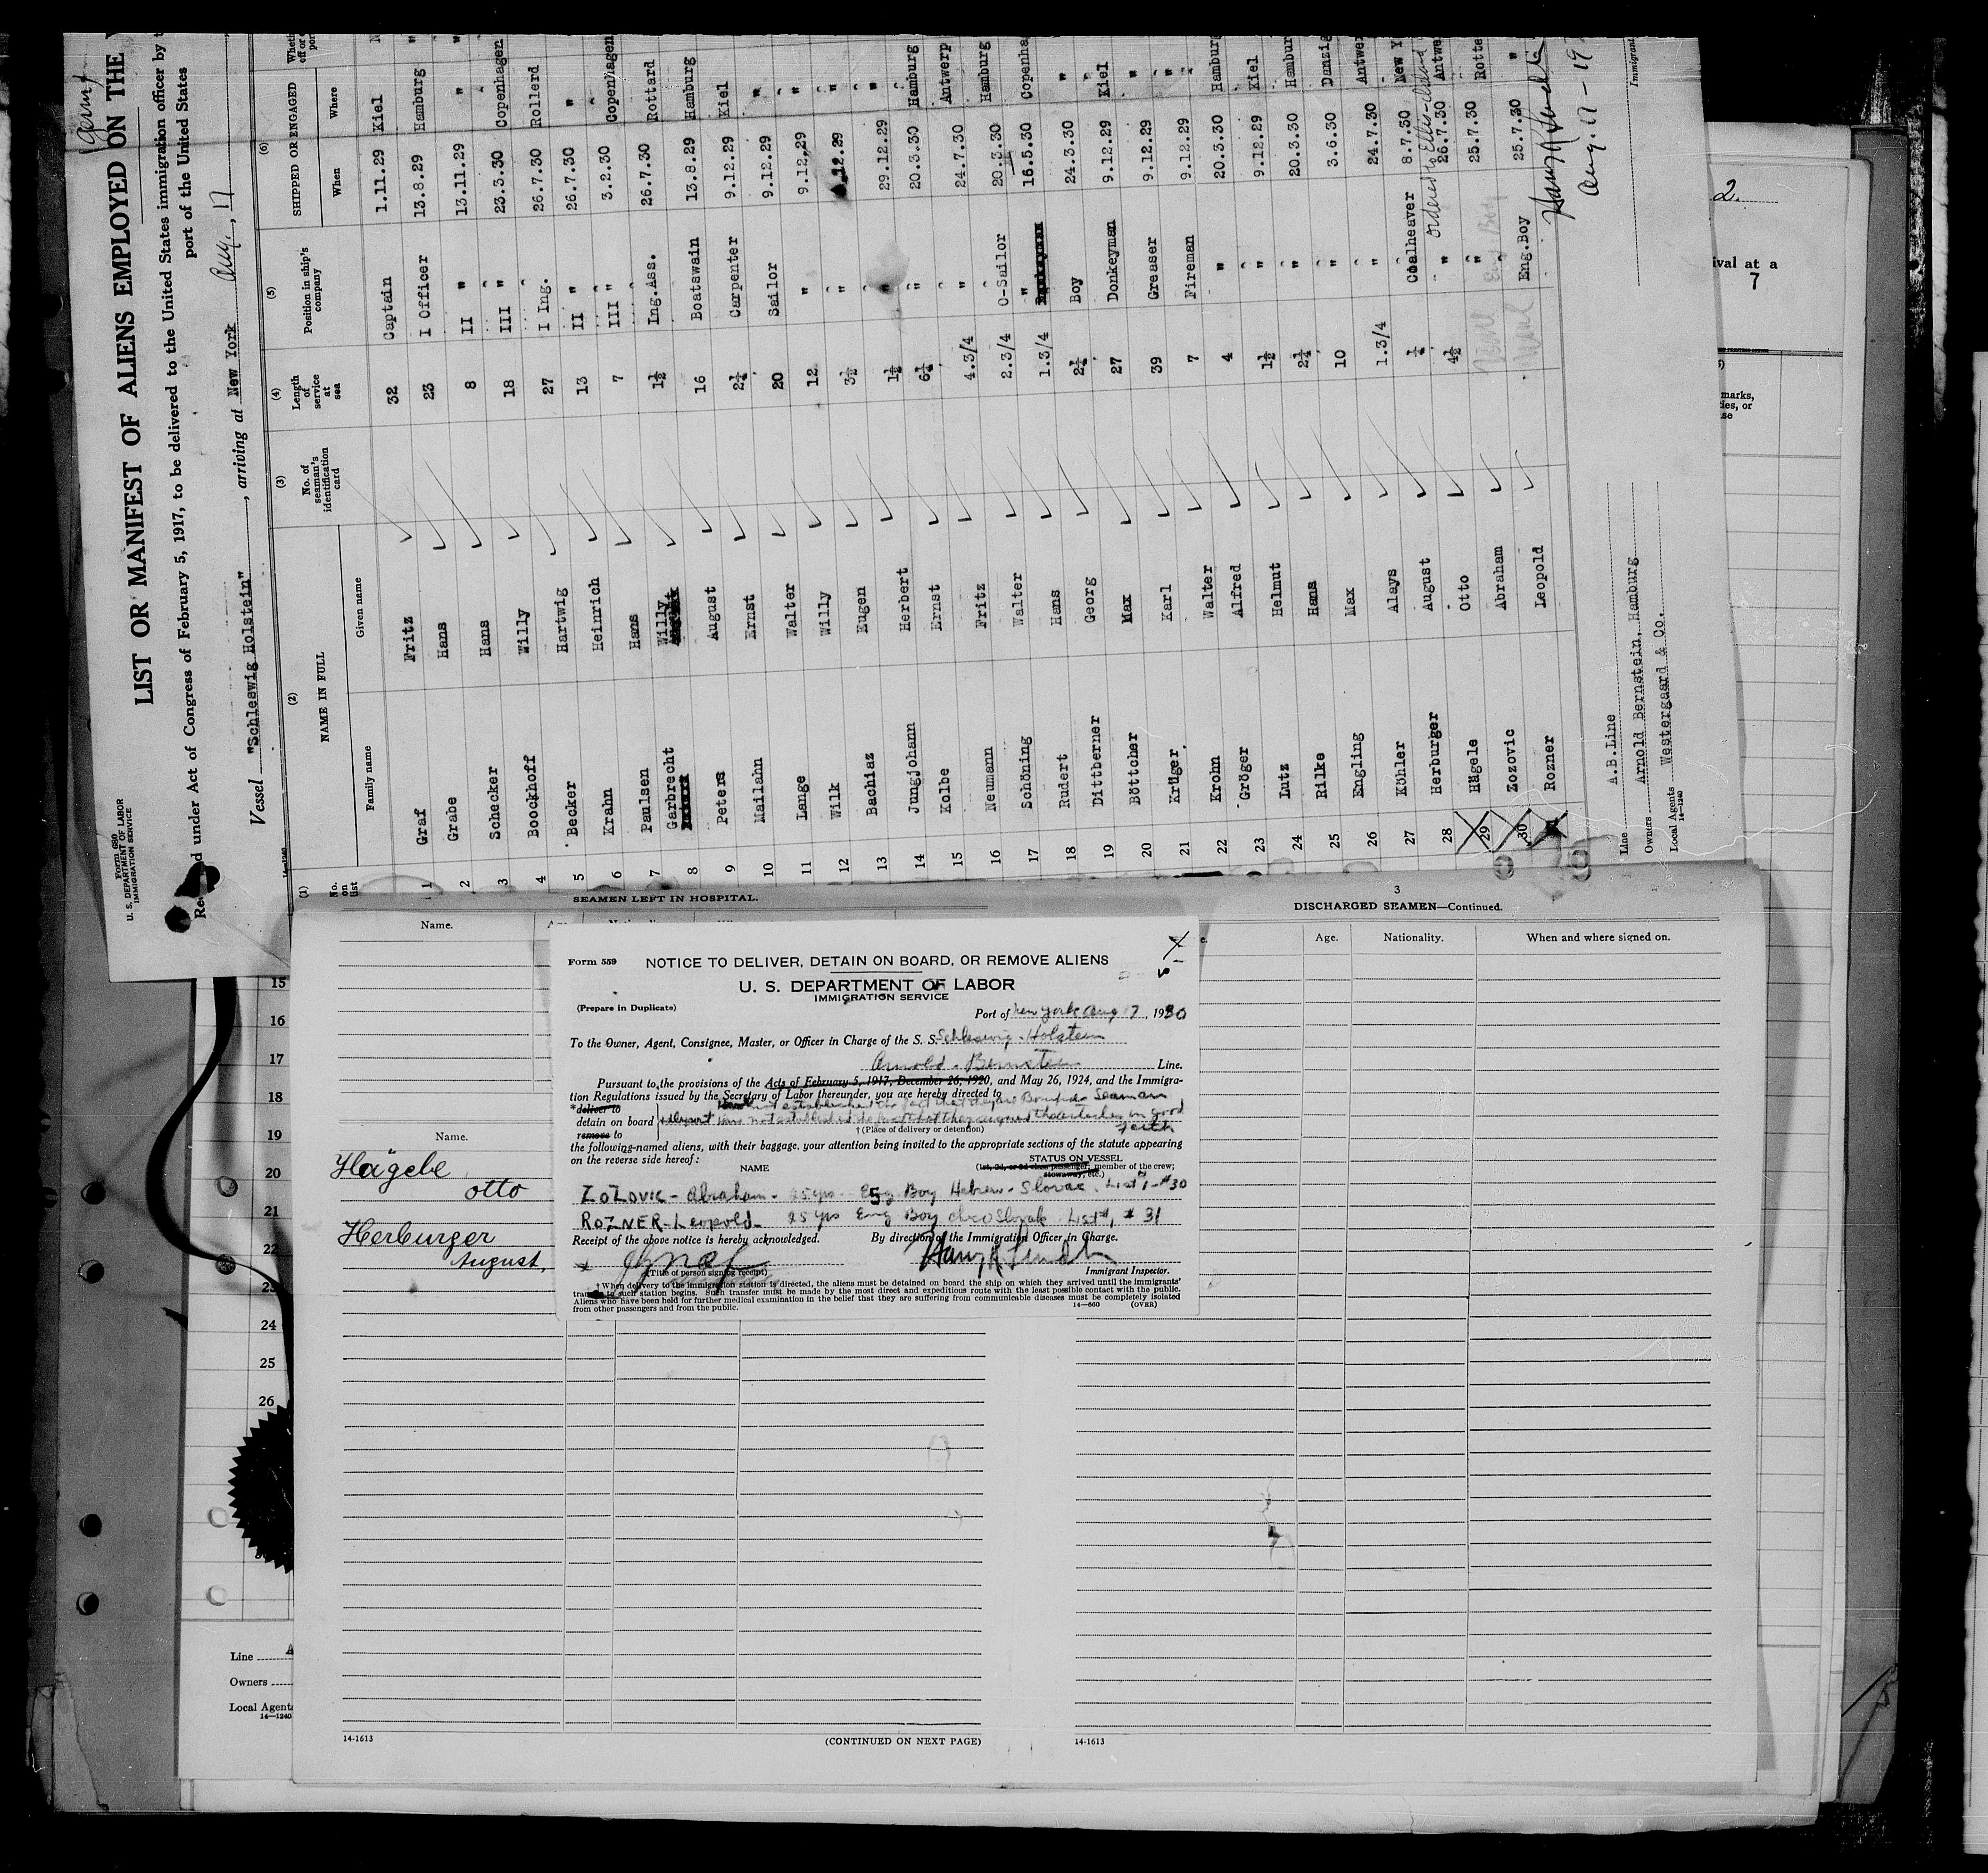 Form 680
U. S. DEPARTMENT OF LABOR
IMMIGRATION SERVICE
LIST OR MANIFEST OF ALIENS EMPLOYED ON THE
under Act of Congress of February 5, 1917, to be delivered to the United States immigration officer by
port of the United States
Vessel "Schleswig Holstein", arriving at New York Aug. 17
14-1240
(1) (2) (3) (4) (5) (6)
No. on list NAME IN FULL No. of seaman's identification card Length of service at sea Position in ship's company SHIPPED OR ENGAGED
Family name Given name When Where
1 Graf Fritz 32 Captain 1.11.29 Kiel
2 Grabe Hans 23 I Officer 13.8.29 Hamburg
3 Schecker Hans 8 II " 13.11.29 "
4 Boockhoff Willy 18 III " 23.3.30 Copenhagen
5 Becker Hartwig 27 I Ing. 26.7.30 Rollerd
6 Krahn Heinrich 13 II " 26.7.30 "
7 Paulsen Hans 7 III " 3.2.30 Copenhagen
8 Garbrecht Willy 1½ Ing.Ass. 26.7.30 Rottard
9 Peters August 16 Boatswain 13.8.29 Hamburg
10 Mailahn Ernst 2½ Carpenter 9.12.29 Kiel
11 Lange Walter 20 Sailor 9.12.29 "
12 Wilk Willy 12 " 9.12.29 "
13 Bachiaz Eugen 3½ " .12.29 "
14 Jungjohann Herbert 1½ " 29.12.29 "
15 Kolbe Ernst 6¼ " 20.3.30 Hamburg
16 Neumann Fritz 4.3/4 " 24.7.30 Antwerp
17 Schöning Walter 2.3/4 O-Sailor 20.3.30 Hamburg
18 Rudert Hans 1.3/4 " 16.5.30 Copenha
19 Dittberner Georg 2¼ Boy 24.3.30 "
20 Böttcher Max 27 Donkeyman 9.12.29 Kiel
21 Krüger Karl 39 Greaser 9.12.29 "
22 Krohn Walter 7 Fireman 9.12.29 "
23 Gröger Alfred 4 " 20.3.30 Hamburg
24 Lutz Helmut 1½ " 9.12.29 Kiel
25 Rilke Hans 2¼ " 20.3.30 Hambur
26 Engling Max 10 " 3.6.30 Danzig
27 Köhler Alays 1.3/4 " 24.7.30 Antwer
28 Herburger August ½ Coalheaver 8.7.30 New Y
29 Hägele Otto 4½ " 26.7.30 Antwe
30 Zozovic Abraham " 25.7.30 Rotte
Rozner Leopold Eng.Boy 25.7.30 "
ordered to Ellis-Island
Aug. 17 - 19
Immigrant
Line A.B.Line
Owners Arnold Bernstein, Hamburg
Local Agents Westergaard & Co.
14-1240
2.
ival at a
7
marks,
ies, or
se
SEAMEN LEFT IN HOSPITAL.
Name.
3
DISCHARGED SEAMEN—Continued.
Age. Nationality. When and where signed on.
Form 559
NOTICE TO DELIVER, DETAIN ON BOARD, OR REMOVE ALIENS
U. S. DEPARTMENT OF LABOR
IMMIGRATION SERVICE
(Prepare in Duplicate)
Port of New York Aug 17, 1930
To the Owner, Agent, Consignee, Master, or Officer in Charge of the S. S. Schleswig-Holstein
Arnold - Bernstein Line.
Pursuant to the provisions of the Acts of February 5, 1917, December 26, 1920, and May 26, 1924, and the Immigra-
tion Regulations issued by the Secretary of Labor thereunder, you are hereby directed to
*deliver to have not established the fact that they are Bonifide Seaman
detain on board have not established the fact that they signed the articles in good
remove to †(Place of delivery or detention) Faith
the following-named aliens, with their baggage, your attention being invited to the appropriate sections of the statute appearing
on the reverse side hereof:
NAME
STATUS ON VESSEL
(1st, 2d, or 3d class passenger; member of the crew;
stowaway, etc.)
ZOZOVIC - Abraham - 25 yrs - Eng Boy Hebrew - Slovac. List #1 - #30
ROZNER - Leopold - 25 yrs Eng Boy Slovak List #1, #31
Receipt of the above notice is hereby acknowledged.
By direction of the Immigration Officer in Charge.
(Title of person signing receipt)
Immigrant Inspector.
†When delivery to the immigration station is directed, the aliens must be detained on board the ship on which they arrived until the immigrants'
transfer to such station begins. Such transfer must be made by the most direct and expeditious route with the least possible contact with the public.
Aliens who have been held for further medical examination in the belief that they are suffering from communicable diseases must be completely isolated
from other passengers and from the public.
14—660 (OVER)
Name.
Hägele
Otto
Herburger
August,
15
16
17
18
19
20
21
22
23
24
25
26
Line
Owners
Local Agents
14—1240
14-1613
(CONTINUED ON NEXT PAGE)
14-1613